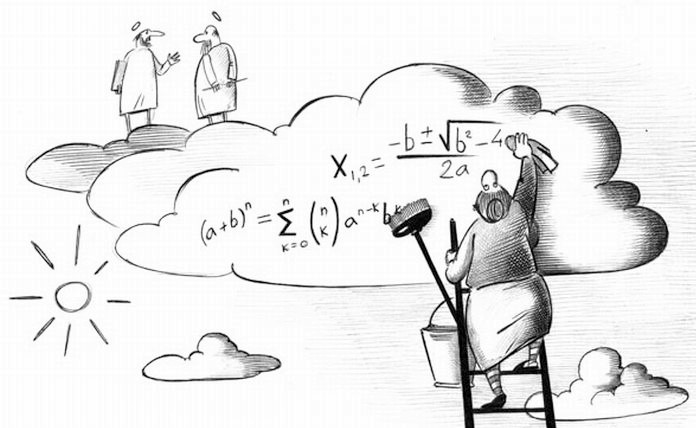 X₁,₂ = -b ± √b² - 4 / 2a
(a+b)ⁿ = ∑ⁿₖ₌₀ (n k) aⁿ⁻ᵏ bᵏ